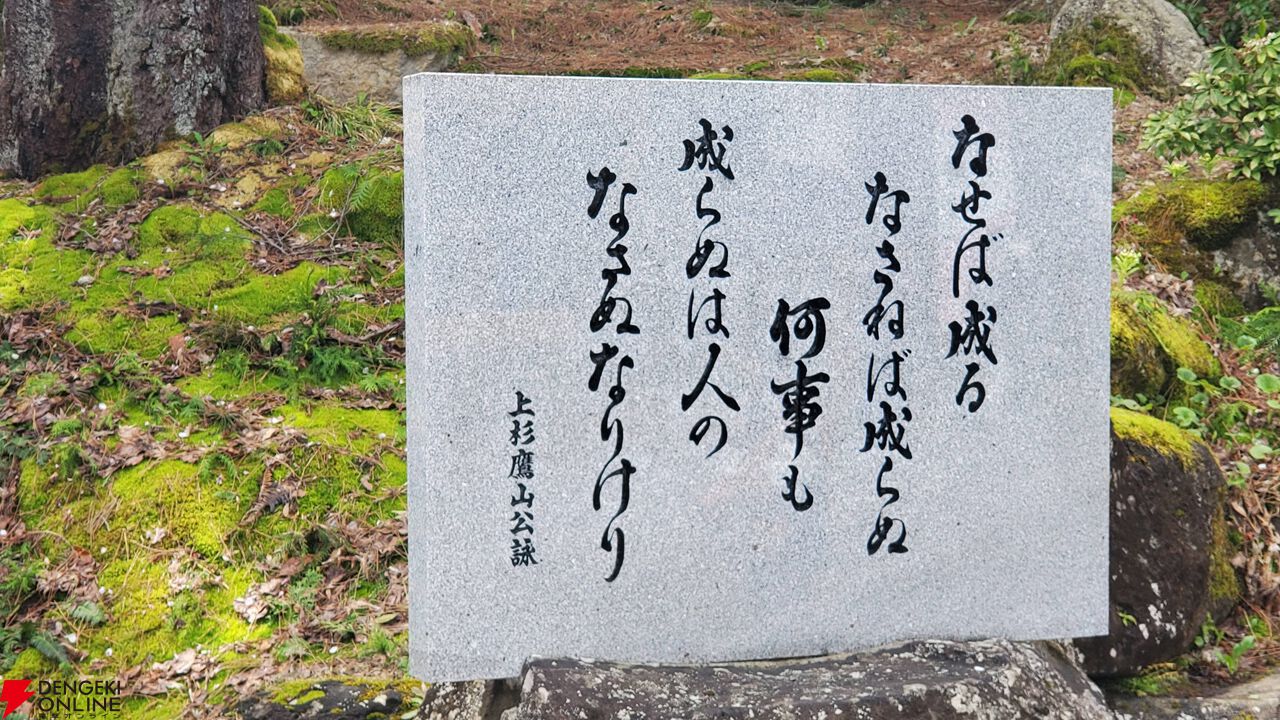 なせば成る
なさねば成らぬ
何事も
成らぬは人の
なさぬなりけり
上杉鷹山公詠
DENGEKI
ONLINE
電撃オンライン